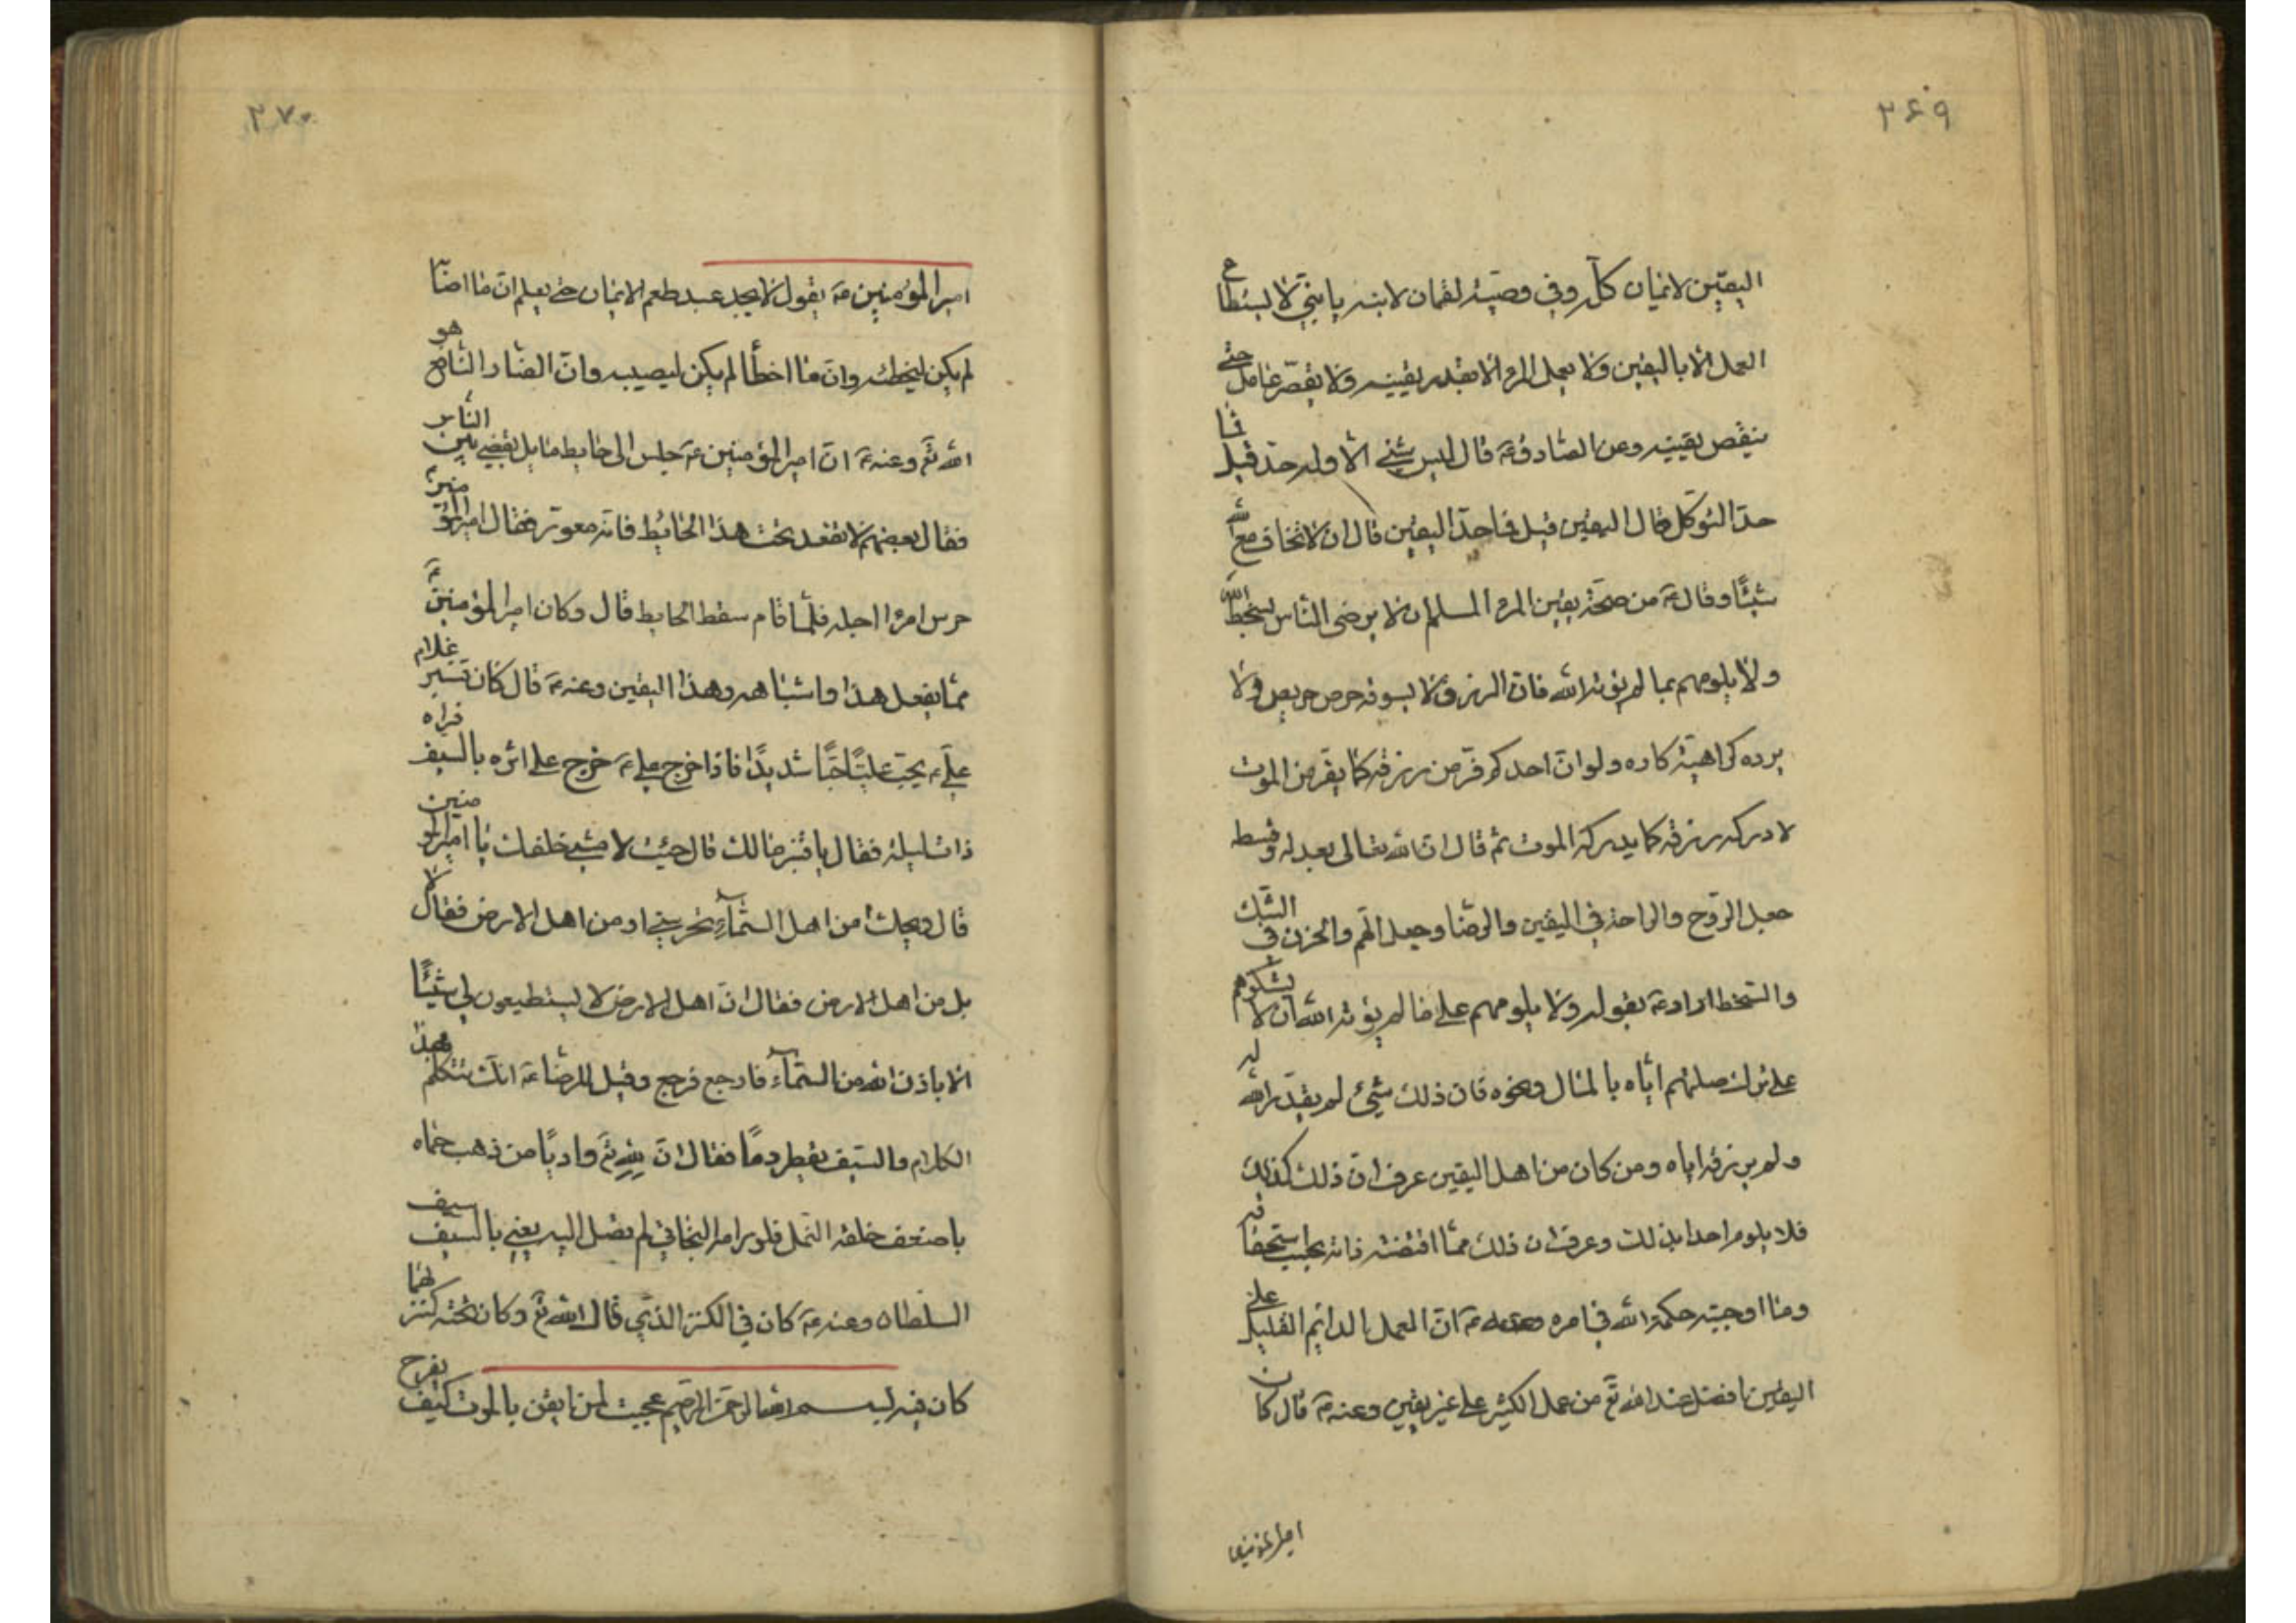 ۳۶۹
اليقين الايمان كله وفى وصيّة لقمان لابنه يا بنىّ لا يستطاع
العمل الا باليقين ولا يعمل المرء الا بقدر يقينه ولا يقصّر عامل حتى
ينقص يقينه وعن الصادق ع قال ليس شئ الا وله حدّ قيل فما
حدّ التوكّل قال اليقين قيل فما حدّ اليقين قال ان لا تخاف مع الله
شيئًا وقال ع من صحّة يقين المرء المسلم ان لا يرضى الناس بسخط الله
ولا يلومهم بما لم يؤته الله فان الرزق لا يسوقه حرص حريص ولا
يرده كراهيّة كاره ولو انّ احدكم فرّ من رزقه كما يفرّ من الموت
لادركه رزقه كما يدركه الموت ثم قال ان الله تعالى بعدله وقسطه
جعل الرّوح والراحة فى اليقين والرضا وجعل الهم والحزن فى الشك
والسّخط اراد ع بقوله ولا يلومهم على ما لم يؤته الله ان لا يشكوهم
على ترك صلتهم ايّاه بالمال ونحوه فان ذلك شئ لم يقدّره الله له
ولم يرزقه اياه ومن كان من اهل اليقين عرف ان ذلك كذلك
فلا يلوم احدا بذلك وعرف ان ذلك ممّا اقتضته ذاته بحسب استحقاقه
وما اوجبته حكمة الله فى امره وعنه ع انّ العمل الدائم القليل على
اليقين افضل عند الله تع من عمل الكثير على غير يقين وعنه ع قال كان
امير المؤمنين
۳۷۰
امير المؤمنين ع يقول لا يجد عبد طعم الايمان حتى يعلم انّ ما اصابه
لم يكن ليخطئه وانّ ما اخطأ لم يكن ليصيبه وانّ الضار النافع هو
الله تع وعنه ع انّ امير المؤمنين ع جلس الى حايط مايل يقضى بين الناس
فقال بعضهم لا تقعد تحت هذا الحائط فانه معور فقال امير المؤمنين ع
حرس امرءا اجله فلمّا قام سقط الحايط قال وكان امير المؤمنين ع
ممّا يفعل هذا واشباهه وهذا اليقين وعنه ع قال كان قنبر غلام
علىّ ع يحبّ عليّا حبّا شديدًا فاذا خرج على ع خرج على اثره بالسيف فراه
ذات ليلة فقال يا قنبر مالك قال جئت لامشى خلفك يا امير المؤمنين
قال ويحك أمن اهل السّماء تحرسنى او من اهل الارض فقال لا
بل من اهل الارض فقال انّ اهل الارض لا يستطيعون لى شيئًا
الا باذن الله من السّماء فارجع فرجع وقيل للرضا ع انك تتكلّم بهذا
الكلام والسّيف يقطر دمًا فقال انّ لله تع واديًا من ذهب حماه
باضعف خلقه النمل فلو رامه البخاتى لم تصل اليه يعنى بالسيف سيف
السلطان وعنه ع كان فى الكنز الذى قال الله تع وكان تحته كنز لهما
كان فيه بسم الله الرحمن الرحيم عجبت لمن ايقن بالموت كيف يفرح